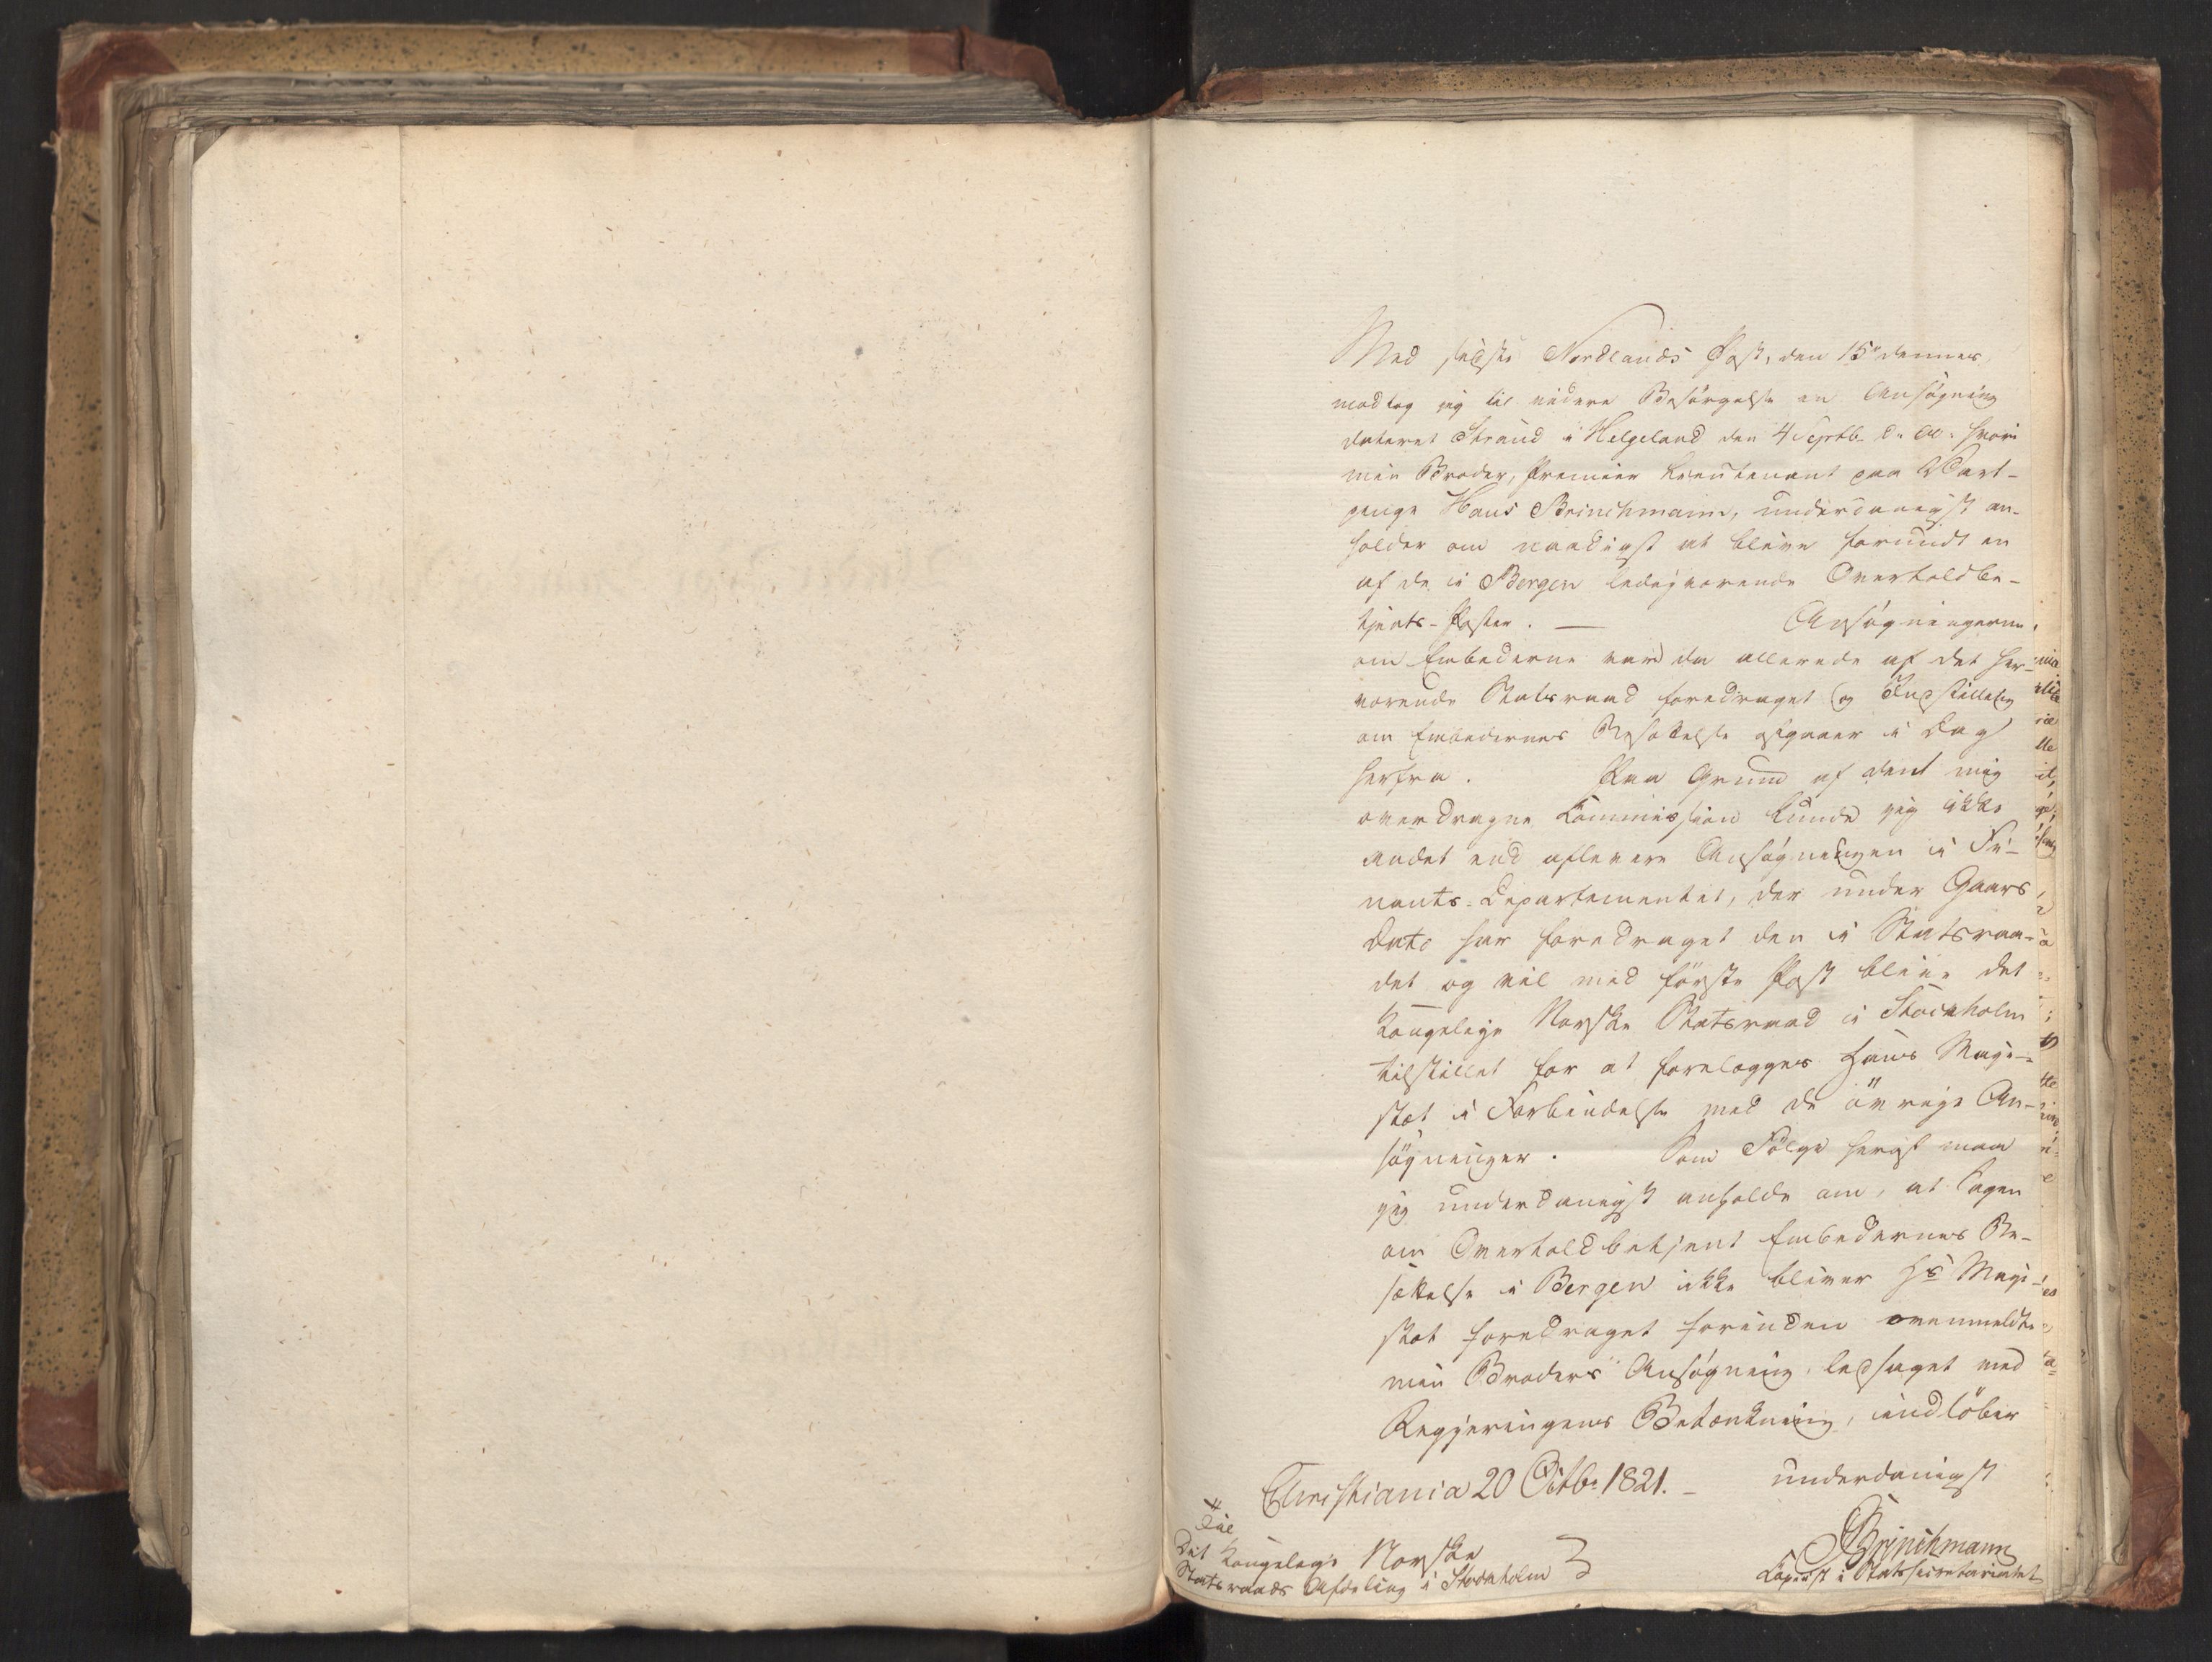 Med sidste Nordlands Post, den 15de dennes
modtog jeg til videre Besørgelse en Ansøgning
dateret Strand i Helgeland den 4 Septb. d. A. hvori
min Broder, Premier Lieutenant paa Vart-
penge Hans Brinchmann, underdanigst an-
holder om naadigst at blive forundt en
af de i Bergen ledigværende Overtoldbe-
tjents-Poster. — Ansøgningerne
om Embederne var da allerede af det her-
værende Statsraad foredraget og Indstilling
om Embedernes Besættelse afgaaer i Dag
herfra. Paa Grund af dend mig
overdragne Commission kunde jeg ikke
andet end aflevere Ansøgningen i Fi-
nants-Departementet, der under Gaars
Dato har foredraget den i Statsraa-
det og vil med første Post blive det
Kongelige Norske Statsraad i Stockholm
tilstillet for at forelægges Hans Maje-
stæt i Forbindelse med de øvrige An-
søgninger. Som Følge heraf maa
jeg underdanigst anholde om, at Sagen
om Overtoldbetjent Embedernes Be-
sættelse i Bergen ikke bliver Hs Maje-
stæt foredraget forinden ovenmeldte
min Broders Ansøgning, ledsaget med
Regjeringens Betænkning, indløber
Christiania 20 Octbr 1821. – underdanigst
Brinchmann
Copiist i Statssecretariatet
Til
Det Kongelige Norske
Statsraads Afdeling i Stockholm